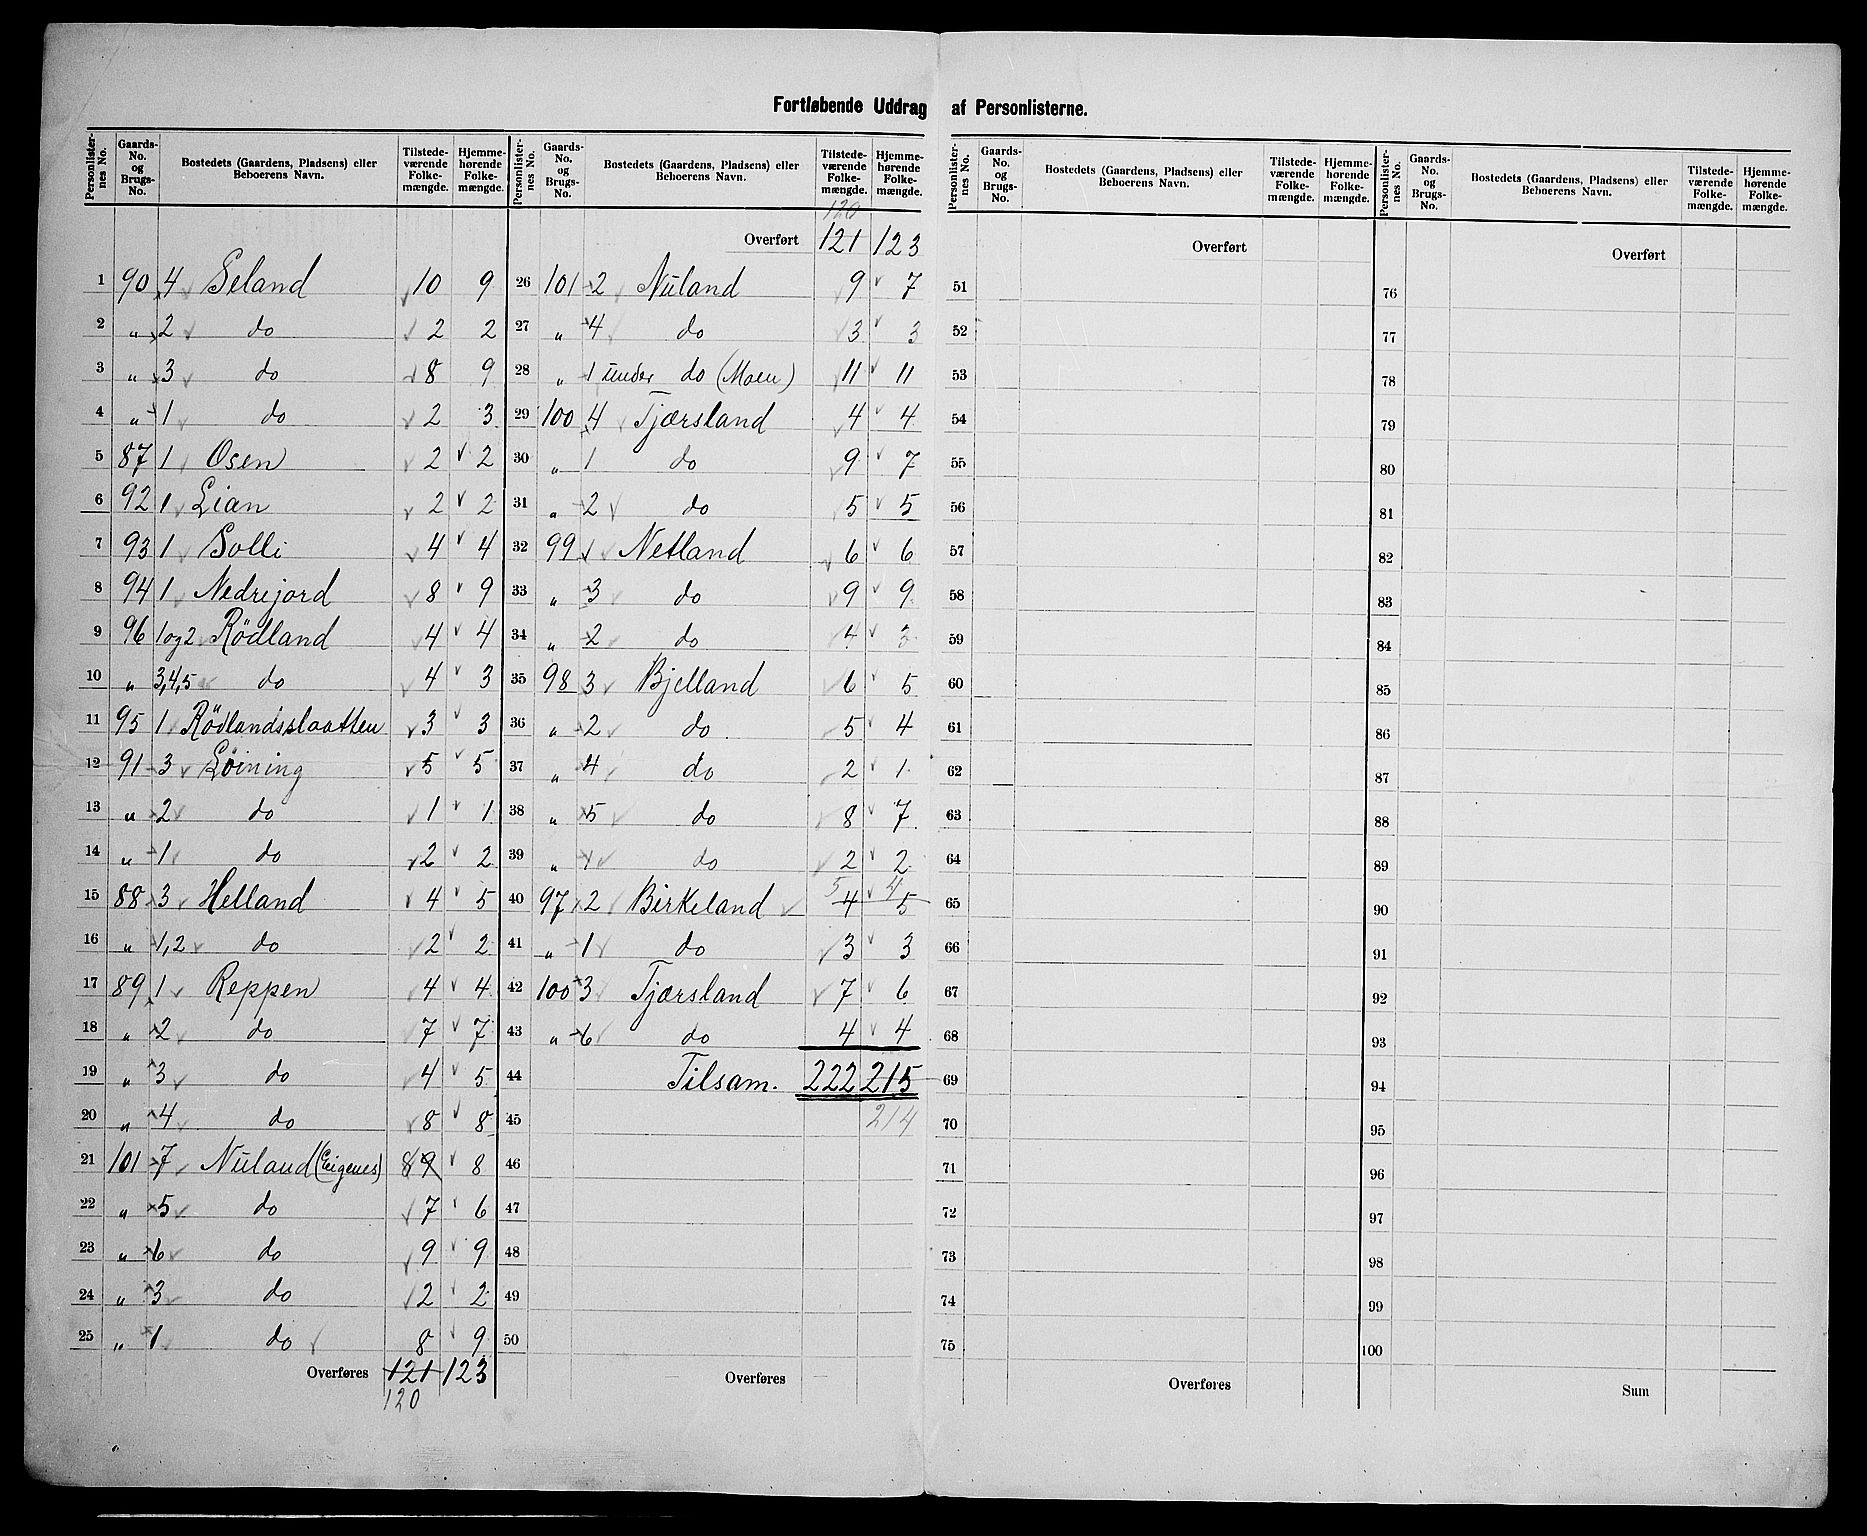 Fortløbende Uddrag af Personlisterne.
Personlister-nes No. | Gaards-No. og Brugs-No. | Bostedets (Gaardens, Pladsens) eller Beboerens Navn. | Tilstede-værende Folke-mængde. | Hjemme-hørende Folke-mængde.
1 90 4 Seland 10 9
2 „ 2 do 2 2
3 „ 3 do 8 9
4 „ 1 do 2 3
5 87 1 Osen 2 2
6 92 1 Lian 2 2
7 93 1 Solli 4 4
8 94 1 Nedrejord 8 9
9 96 1og2 Rödland 4 4
10 „ 3,4,5 do 4 3
11 95 1 Rödlandsslaatten 3 3
12 91 3 Löining 5 5
13 „ 2 do 1 1
14 „ 1 do 2 2
15 88 3 Helland 4 5
16 „ 1,2 do 2 2
17 89 1 Reppen 4 4
18 „ 2 do 7 7
19 „ 3 do 4 5
20 „ 4 do 8 8
21 101 7 Nuland (Eigenes) 8 9 8
22 „ 5 do 7 6
23 „ 6 do 9 9
24 „ 3 do 2 2
25 „ 1 do 8 9
Overføres 121 123
120
Personlister-nes No. | Gaards-No. og Brugs-No. | Bostedets (Gaardens, Pladsens) eller Beboerens Navn. | Tilstede-værende Folke-mængde. | Hjemme-hørende Folke-mængde.
120
Overført 121 123
26 101 2 Nuland 9 7
27 „ 4 do 3 3
28 „ 1 under do (Moen) 11 11
29 100 4 Tjærsland 4 4
30 „ 1 do 9 7
31 „ 2 do 5 5
32 99 1 Netland 6 6
33 „ 3 do 9 9
34 „ 2 do 4 3
35 98 3 Bjelland 6 5
36 „ 2 do 5 4
37 „ 4 do 2 1
38 „ 5 do 8 7
39 „ 1 do 2 2
5 4
40 97 2 Birkeland 4 5
41 „ 1 do 3 3
42 100 3 Tjærsland 7 6
43 „ 6 do 4 4
44 Tilsam. 222 215
45 214
46
47
48
49
50
Overføres
Personlister-nes No. | Gaards-No. og Brugs-No. | Bostedets (Gaardens, Pladsens) eller Beboerens Navn. | Tilstede-værende Folke-mængde. | Hjemme-hørende Folke-mængde.
Overført
51
52
53
54
55
56
57
58
59
60
61
62
63
64
65
66
67
68
69
70
71
72
73
74
75
Overføres
Personlister-nes No. | Gaards-No. og Brugs-No. | Bostedets (Gaardens, Pladsens) eller Beboerens Navn. | Tilstede-værende Folke-mængde. | Hjemme-hørende Folke-mængde.
Overført
76
77
78
79
80
81
82
83
84
85
86
87
88
89
90
91
92
93
94
95
96
97
98
99
100
Sum